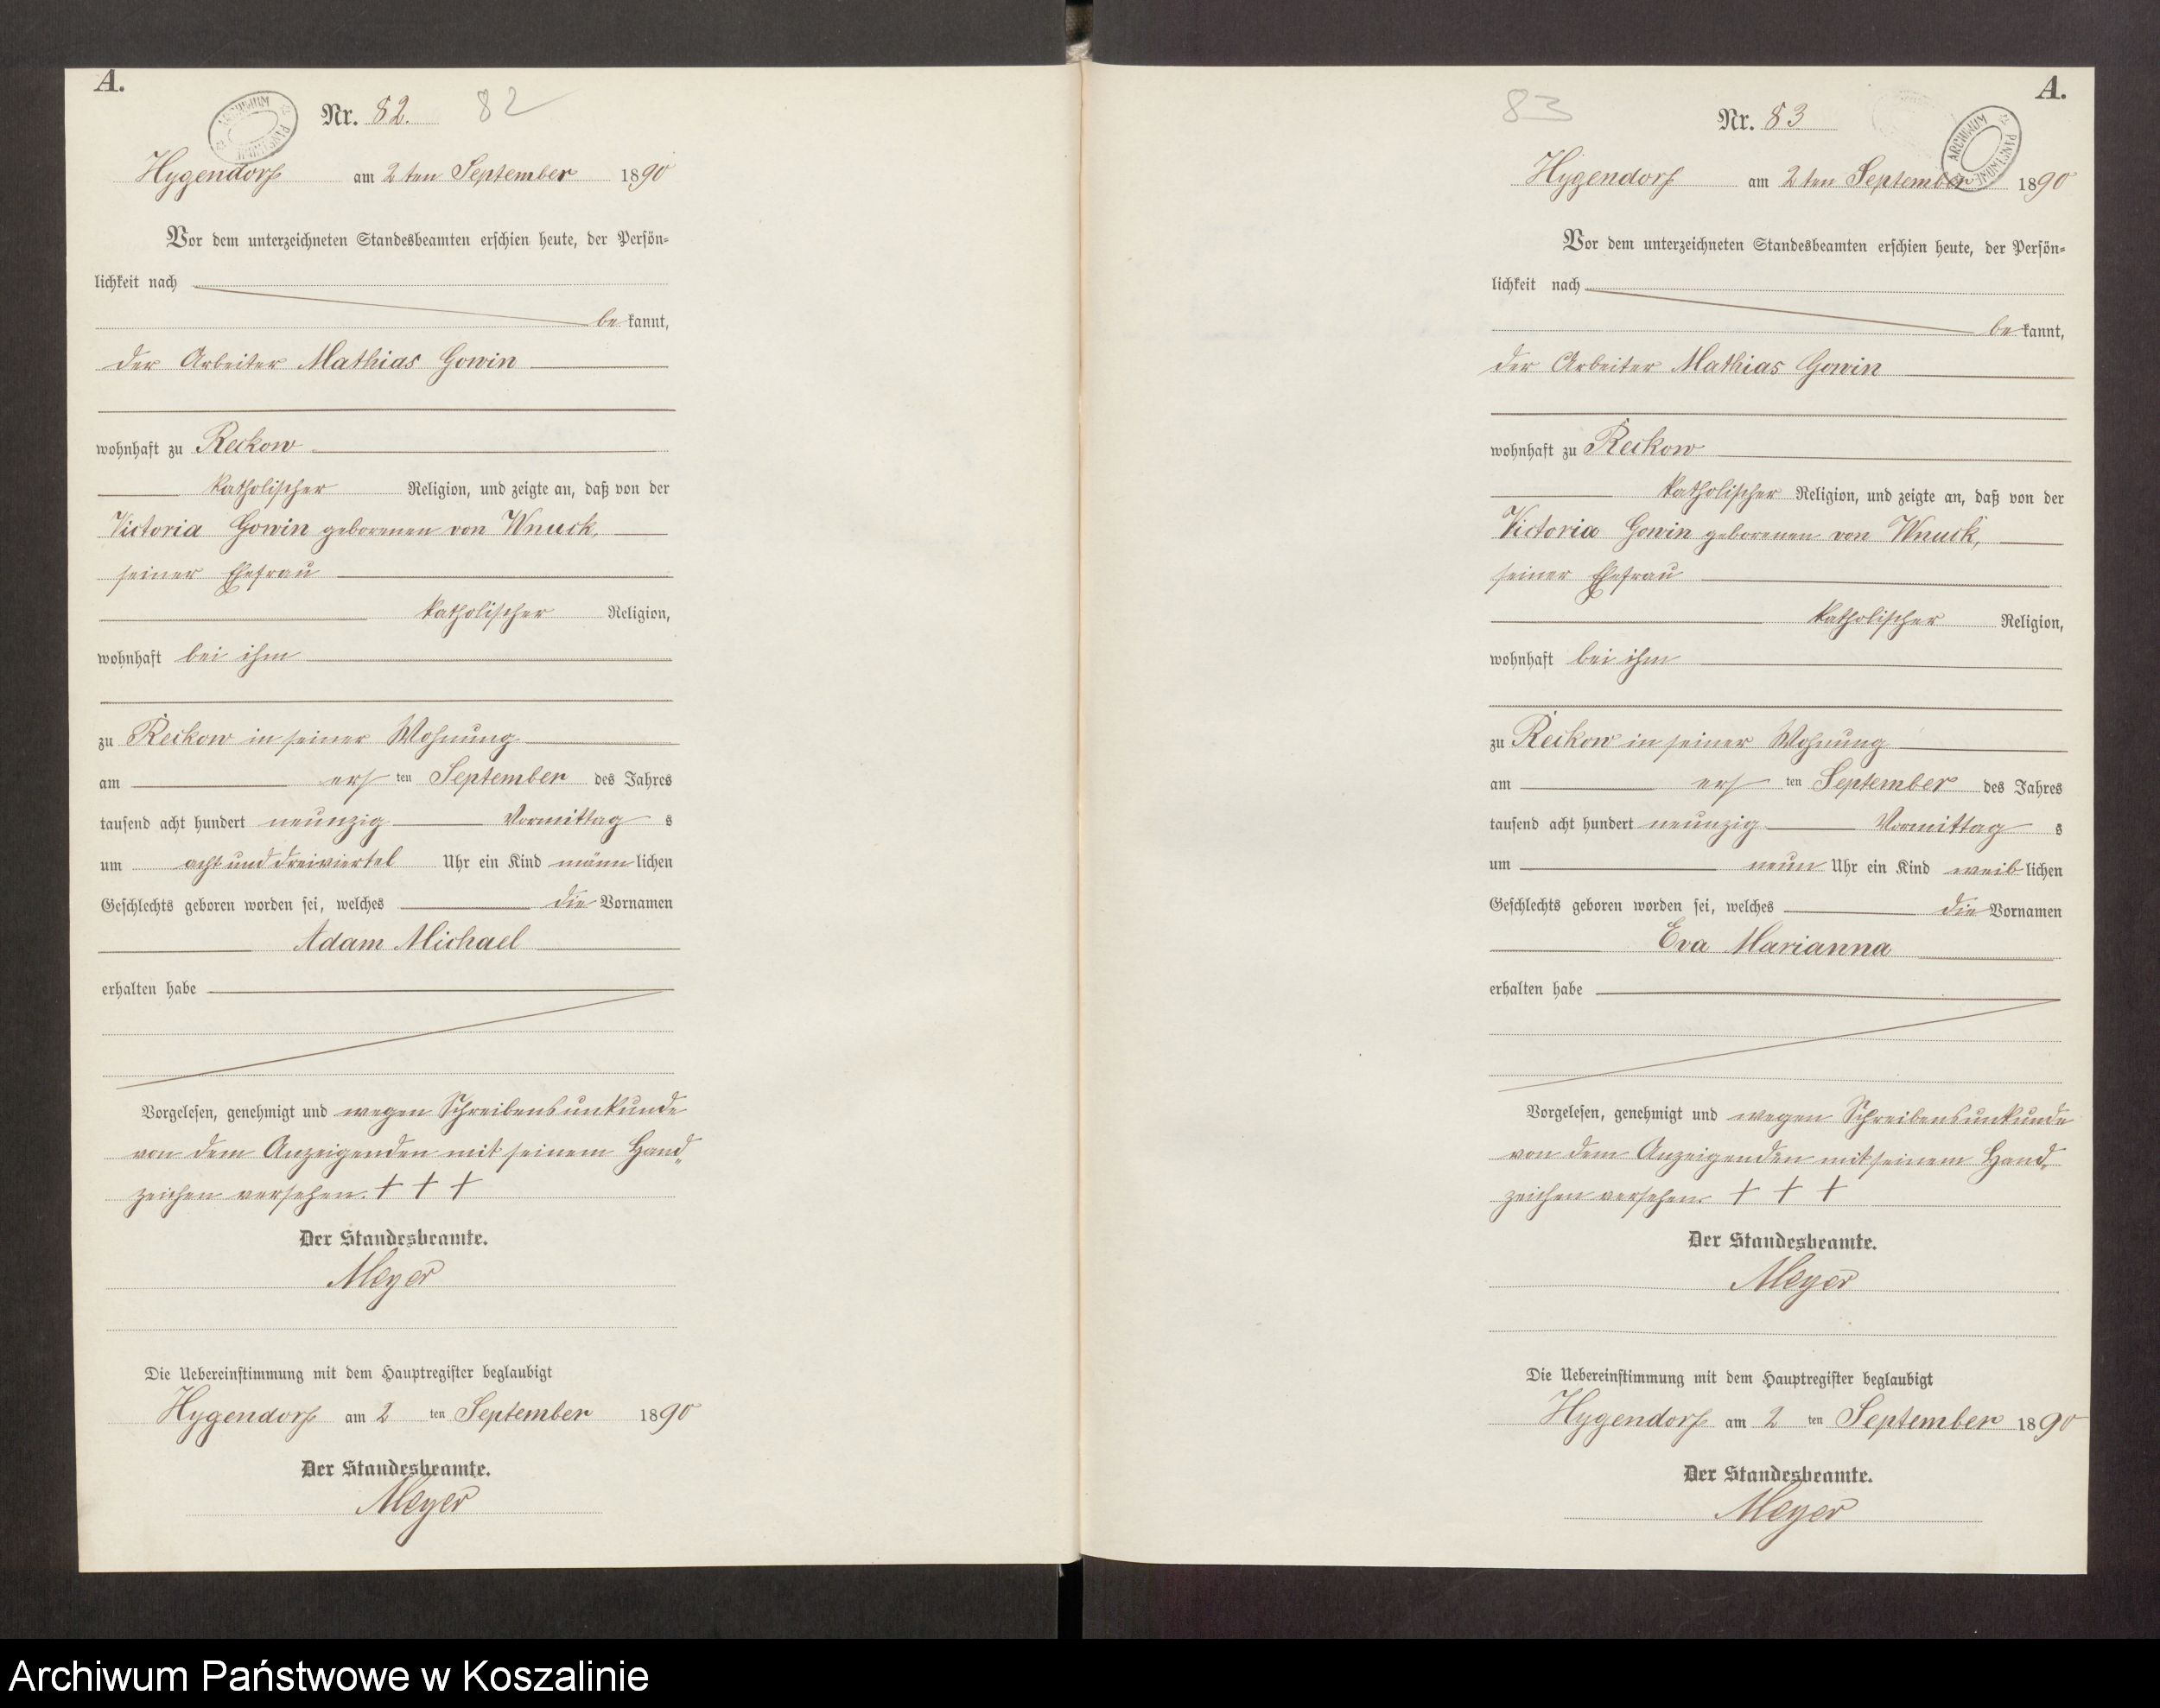 A.
ARCHIWUM PAŃSTWOWE
Nr. 82. 82
Hygendorf am 2ten September 1890
Vor dem unterzeichneten Standesbeamten erschien heute, der Persön-
lichkeit nach
bekannt,
der Arbeiter Mathias Gowin
wohnhaft zu Reckow
katholischer Religion, und zeigte an, daß von der
Victoria Gowin geborenen von Wnuck,
seiner Ehefrau
katholischer Religion,
wohnhaft bei ihm
zu Reckow in seiner Wohnung
am ersten September des Jahres
tausend acht hundert neunzig Vormittags
um acht und dreiviertel Uhr ein Kind männlichen
Geschlechts geboren worden sei, welches die Vornamen
Adam Michael
erhalten habe
Vorgelesen, genehmigt und wegen Schreibensunkunde
von dem Anzeigenden mit seinem Hand„
zeichen versehen. + + +
Der Standesbeamte.
Meyer
Die Uebereinstimmung mit dem Hauptregister beglaubigt
Hygendorf am 2 ten September 1890
Der Standesbeamte.
Meyer
A.
83
Nr. 83
ARCHIWUM PAŃSTWOWE
Hygendorf am 2ten September 1890
Vor dem unterzeichneten Standesbeamten erschien heute, der Persön-
lichkeit nach
bekannt,
der Arbeiter Mathias Gowin
wohnhaft zu Reckow
katholischer Religion, und zeigte an, daß von der
Victoria Gowin geborenen von Wnuck,
seiner Ehefrau
katholischer Religion,
wohnhaft bei ihm
zu Reckow in seiner Wohnung
am ersten September des Jahres
tausend acht hundert neunzig Vormittags
um neun Uhr ein Kind weiblichen
Geschlechts geboren worden sei, welches die Vornamen
Eva Marianna
erhalten habe
Vorgelesen, genehmigt und wegen Schreibensunkunde
von dem Anzeigenden mit seinem Hand„
zeichen versehen. + + +
Der Standesbeamte.
Meyer
Die Uebereinstimmung mit dem Hauptregister beglaubigt
Hygendorf am 2 ten September 1890
Der Standesbeamte.
Meyer
Archiwum Państwowe w Koszalinie